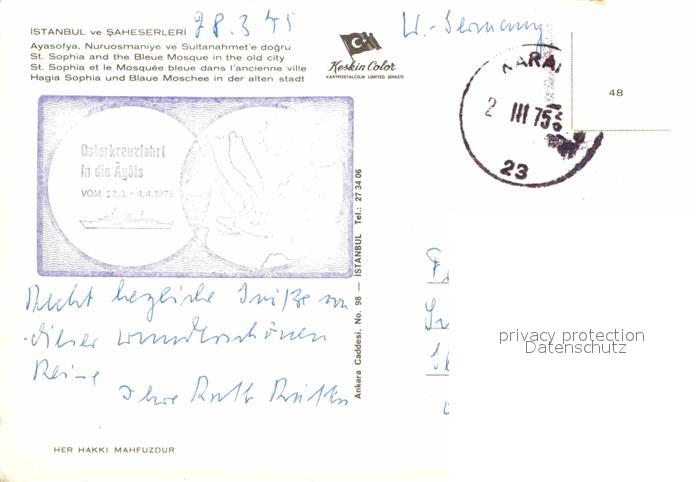 İSTANBUL ve ŞAHESERLERİ
28.3.75
W.-Germany
Ayasofya, Nuruosmaniye ve Sultanahmet'e doğru
St. Sophia and the Bleue Mosque in the old city
St. Sophia et le Mosquée bleue dans l'ancienne ville
Hagia Sophia und Blaue Moschee in der alten stadt
Keskin Color
KARTPOSTALCILIK LIMITED ŞİRKETİ
2 III 75
23
48
Osterkreuzfahrt
in die Ägäis
VOM 22.3. - 4.4.1975
Ankara Caddesi, No. 98 — İSTANBUL Tel.: 27 34 06
Recht herzliche Grüße von
dieser wunderschönen
Reise
Ihre Ruth
privacy protection
Datenschutz
HER HAKKI MAHFUZDUR